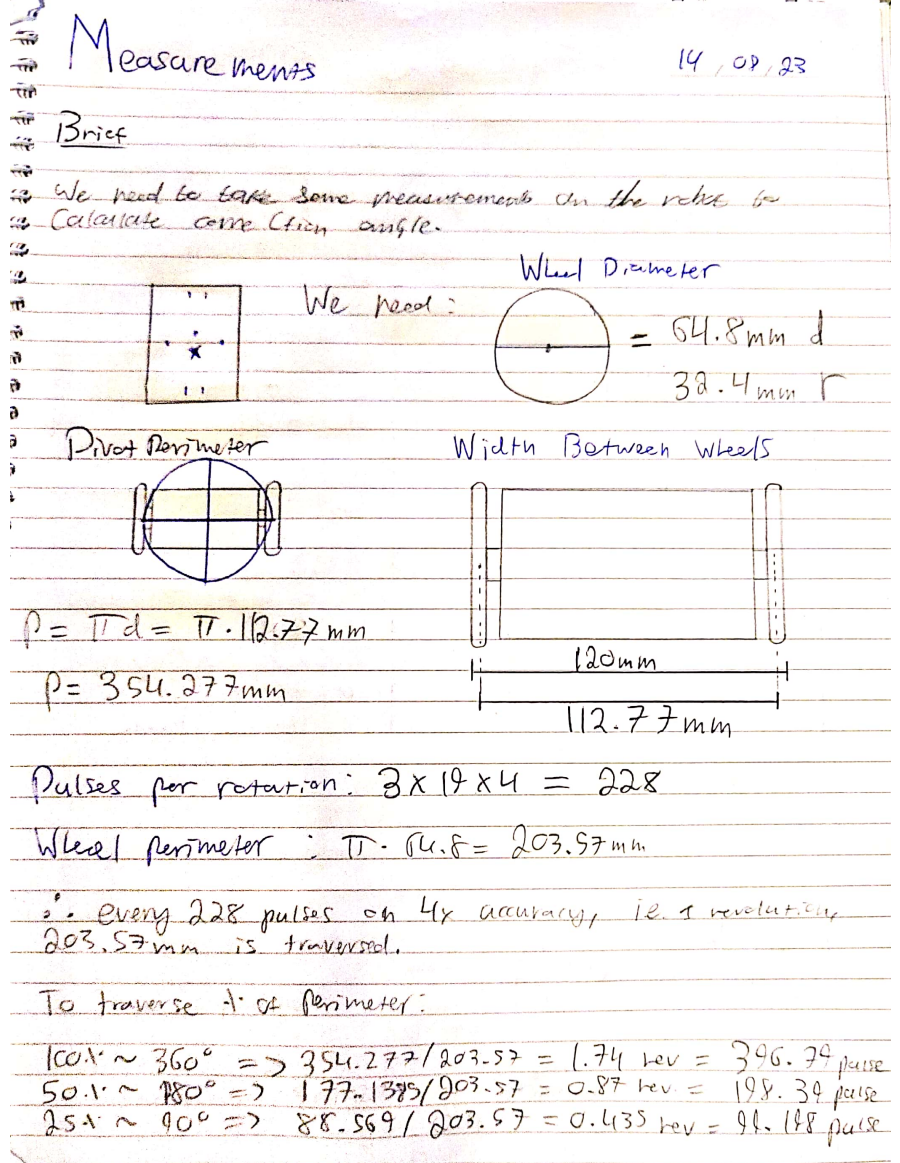 Measurements
14, 08, 23
Brief
We need to take some measurements on the robot to
Calculate correction angle.
We need:
Wheel Diameter
= 64.8mm d
32.4mm r
Pivot Perimeter
Width Between Wheels
P = πd = π · 112.77mm
P = 354.277mm
120mm
112.77mm
Pulses per rotation: 3 x 19 x 4 = 228
Wheel perimeter : π · 64.8 = 203.57mm
∴ every 228 pulses on 4x accuracy, i.e. 1 revolution,
203.57mm is traversed.
To traverse % of Perimeter:
100% ~ 360° => 354.277/203.57 = 1.74 rev = 396.79 pulse
50% ~ 180° => 177.1385/203.57 = 0.87 rev = 198.39 pulse
25% ~ 90° => 88.569/203.57 = 0.435 rev = 99.198 pulse